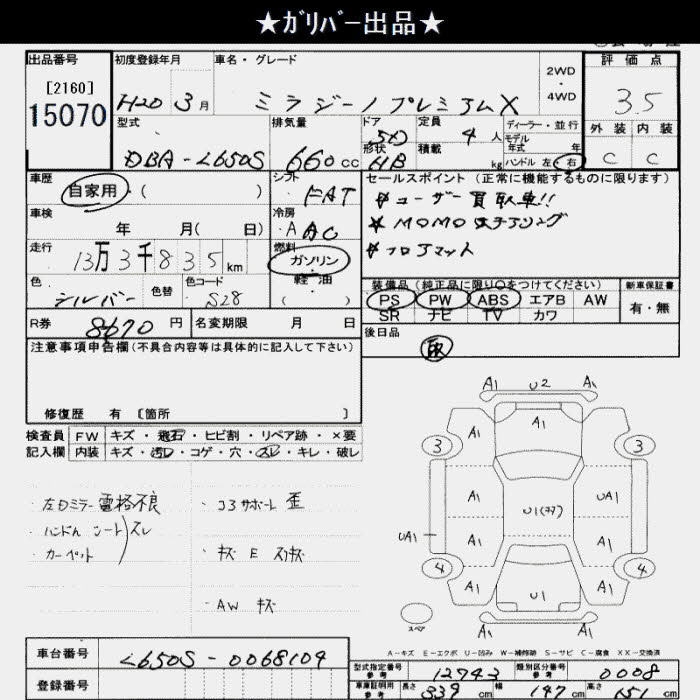 ★ｶﾞﾘﾊﾞｰ出品★
出品番号 初度登録年月 車名・グレード 評価点
[2160] 2WD・4WD
15070 H20 3月 ミラジーノプレミアムX 3.5
型式 排気量 ドア 定員 ディーラー・並行 外装 内装
DBA-L650S 660cc 5D 4人 モデル年式 年
形状 積載 kg ハンドル 左 右 C C
HB
車歴 シフト セールスポイント (正常に機能するものに限ります)
自家用・( ) FAT ユーザー買取車!!
車検 冷房 MOMOステアリング
年 月( 日) A AC フロアマット
走行 燃料
13万3千835km ガソリン・軽油
色 色替 色コード ( ) 装備品(純正品に限り○をつけてください) 新車保証書
シルバー S28 PS PW ABS エアB AW 有・無
SR ナビ TV カワ
R券 8670円 名変期限 月 日 後日品
注意事項申告欄(不具合内容等は具体的に記入して下さい)
取
修復歴 有 [箇所 ]
検査員 FW キズ・飛石・ヒビ割・リペア跡・×要
記入欄 内装 キズ・汚れ・コゲ・穴・スレ・キレ・破レ
・左Dミラー電格不良
・ハンドル シート スレ
・カーペット
・コアサポート 歪
・キズ E スリキズ
・AW キズ
A1 U2 A1
A1 A1 A1
3 3
A1 UA1
U1(ﾏﾀ)
UA1 A1 A1
4 4
A1 U1 A1
スペア A1 A1
A-キズ E-エクボ U-凹み W-補修跡 S-サビ C-腐食 XX-交換済
車台番号 L650S-0068104
型式指定番号 参考 12743 類別区分番号 参考 0008
登録番号
車庫証明用 参考 長さ 339cm 幅 147cm 高さ 151cm